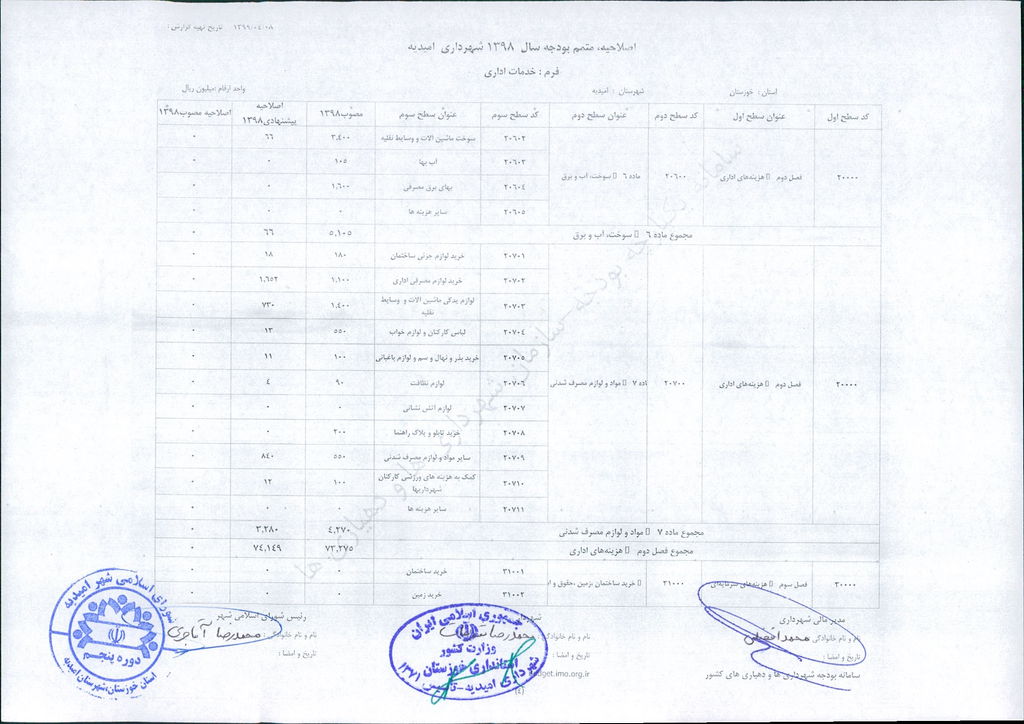 تاریخ تهیه گزارش: ۱۳۹۹/۰۴/۰۸
اصلاحیه، متمم بودجه سال ۱۳۹۸ شهرداری امیدیه
فرم : خدمات اداری
استان : خوزستان شهرستان : امیدیه واحد ارقام :میلیون ریال
کد سطح اول عنوان سطح اول کد سطح دوم عنوان سطح دوم کد سطح سوم عنوان سطح سوم مصوب۱۳۹۸ اصلاحیه پیشنهادی۱۳۹۸ اصلاحیه مصوب۱۳۹۸
۲۰۰۰۰ فصل دوم هزینه‌های اداری ۲۰۶۰۰ ماده ۶ سوخت، آب و برق
۲۰۶۰۲ سوخت ماشین آلات و وسایط نقلیه ۳,۴۰۰ ۶۶ ۰
۲۰۶۰۳ آب بها ۱۰۵ ۰ ۰
۲۰۶۰۴ بهای برق مصرفی ۱,۶۰۰ ۰ ۰
۲۰۶۰۵ سایر هزینه ها ۰ ۰ ۰
مجموع ماده ۶ سوخت، آب و برق ۵,۱۰۵ ۶۶ ۰
۲۰۰۰۰ فصل دوم هزینه‌های اداری ۲۰۷۰۰ اده ۷ مواد و لوازم مصرف شدنی
۲۰۷۰۱ خرید لوازم جزئی ساختمان ۱۸۰ ۱۸ ۰
۲۰۷۰۲ خرید لوازم مصرفی اداری ۱,۱۰۰ ۱,۶۵۲ ۰
۲۰۷۰۳ لوازم یدکی ماشین آلات و وسایط نقلیه ۱,۴۰۰ ۷۳۰ ۰
۲۰۷۰۴ لباس کارکنان و لوازم خواب ۵۵۰ ۱۳ ۰
۲۰۷۰۵ خرید بذر و نهال و سم و لوازم باغبانی ۱۰۰ ۱۱ ۰
۲۰۷۰۶ لوازم نظافت ۹۰ ۴ ۰
۲۰۷۰۷ لوازم آتش نشانی ۰ ۰ ۰
۲۰۷۰۸ خرید تابلو و پلاک راهنما ۲۰۰ ۰ ۰
۲۰۷۰۹ سایر مواد و لوازم مصرف شدنی ۵۵۰ ۸۴۰ ۰
۲۰۷۱۰ کمک به هزینه های ورزشی کارکنان شهرداریها ۱۰۰ ۱۲ ۰
۲۰۷۱۱ سایر هزینه ها ۰ ۰ ۰
مجموع ماده ۷ مواد و لوازم مصرف شدنی ۴,۲۷۰ ۳,۲۸۰ ۰
مجموع فصل دوم هزینه‌های اداری ۷۳,۲۷۵ ۷۴,۱۴۹ ۰
۳۰۰۰۰ فصل سوم هزینه‌های سرمایه‌ای ۳۱۰۰۰ خرید ساختمان ،زمین ،حقوق و
۳۱۰۰۱ خرید ساختمان ۰ ۰ ۰
۳۱۰۰۲ خرید زمین ۰ ۰ ۰
مدیر مالی شهرداری شهردار رئیس شورای اسلامی شهر
نام و نام خانوادگی : محمد نام و نام خانوادگی : محمدرضا نام و نام خانوادگی : محمدرضا آغاجری
تاریخ و امضا : تاریخ و امضا : تاریخ و امضا :
سامانه بودجه شهرداری ها و دهیاری های کشور budget.imo.org.ir
(٤)
جمهوری اسلامی ایران
وزارت کشور
استانداری خوزستان
شهرداری امیدیه-تاسیس: ۱۳۷۱
شورای اسلامی شهر امیدیه
دوره پنجم
استان خوزستان،شهرستان امیدیه